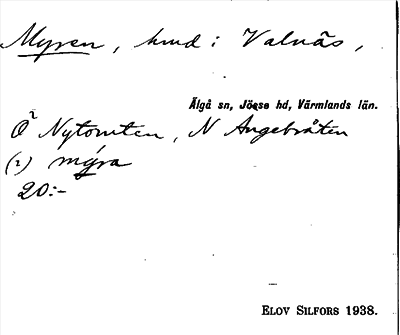 Myren, hmd i Valnäs,
Älgå sn, Jösse hd, Värmlands län.
Ö² Nytomten, N Angebråten
(2) my̆ra
20:-
ELOV SILFORS 1938.